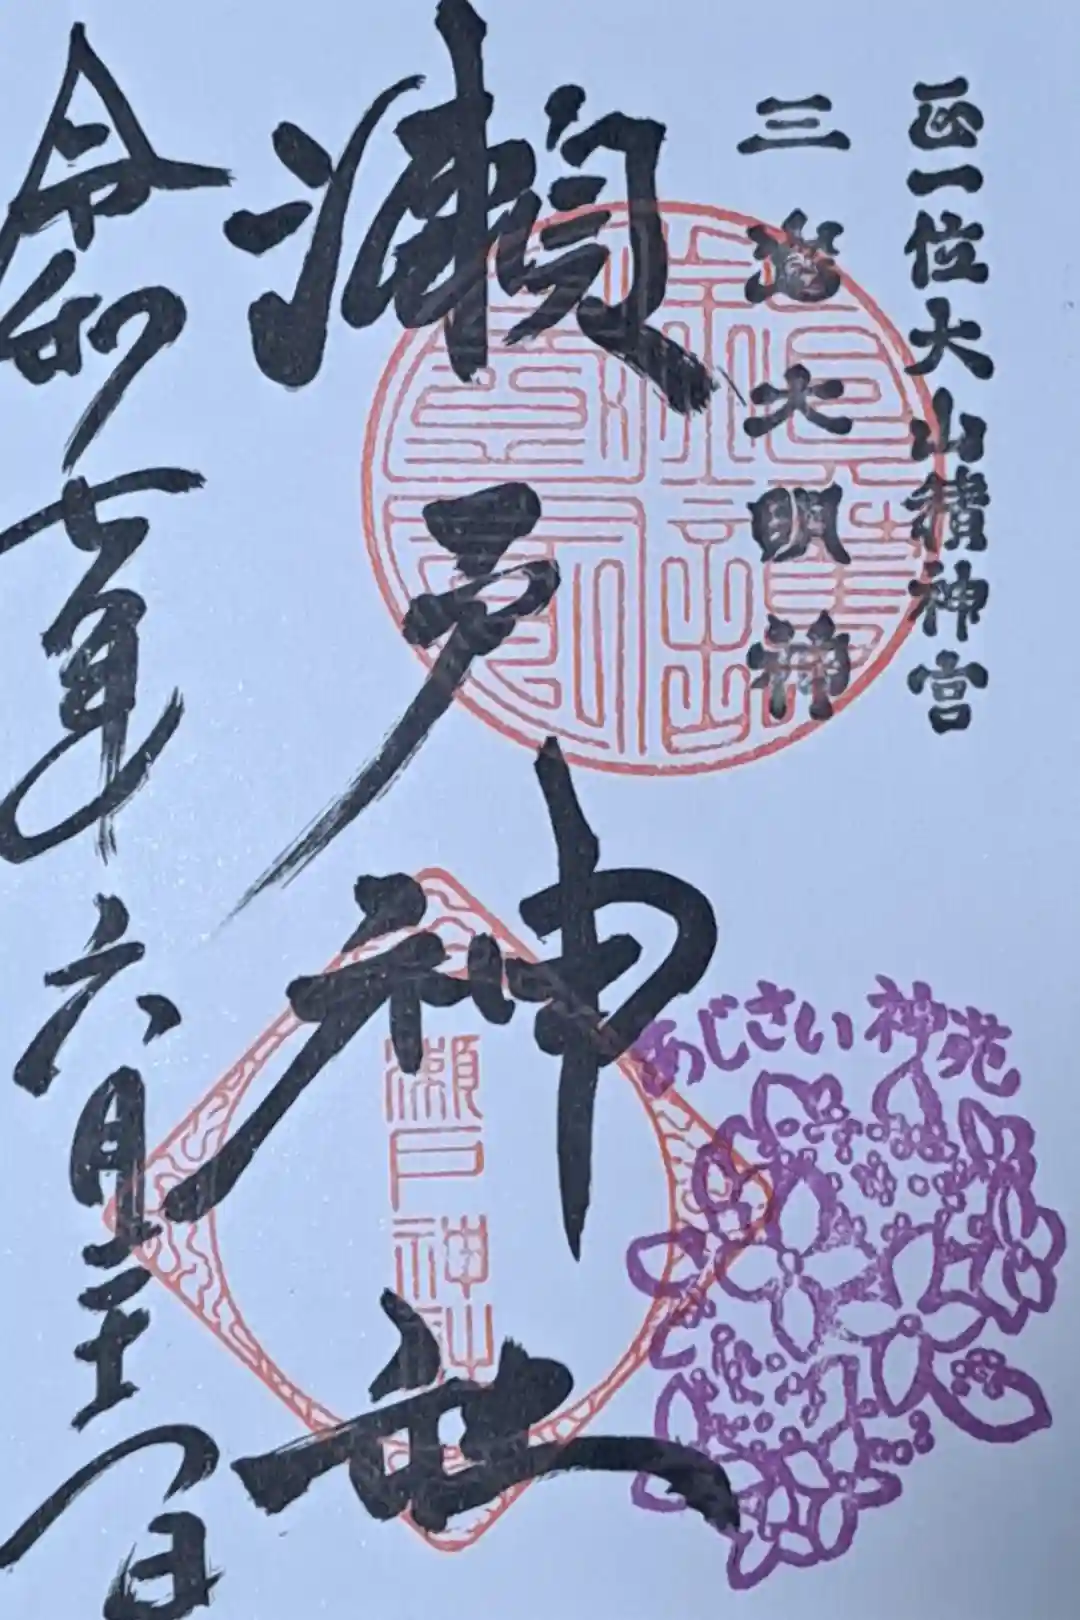 正一位大山積神宮
三 大明神
瀬戸神社
瀬戸神社
あじさい神苑
令和七年六月 日